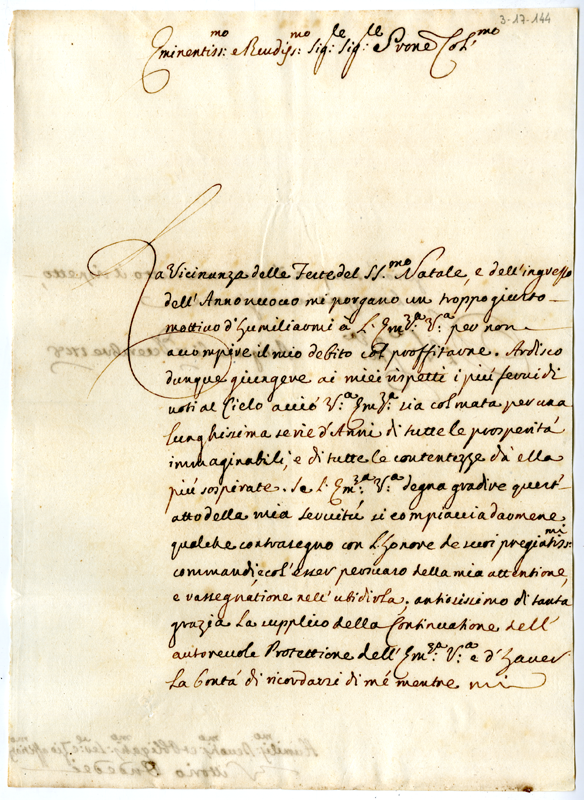 3-17-144
Eminentiss:mo e Reudiss:mo Sig:re Sig:re e Prone Col:mo
La Vicinanza delle Feste del SS.mo Natale, e dell'ingresso
dell'Anno nuouo mi porgano un troppo giusto
mottiuo d'humiliarmi à L'Em:za V:a per non
accompire il mio debito col proffitarne. Ardisco
dunque giungere ai miei rispetti i più feruidi
uoti al Cielo acciò V:a Em:za sia colmata per una
lunghissima serie d'Anni di tutte le prosperità
immaginabili, e di tutte le contentezze da ella
più sospirate. Se l'Em:za V:a degna gradire quest'
atto della mia seruitù, si compiaccia darmene
qualche contrasegno con l'honore de suoi pregiatiss:mi
commandi, e col'esser persuaso della mia attentione,
e rassegnatione nell'ubidirla; antiosissimo di tanta
grazia La supplico della Continuatione dell'
autoreuole Protettione dell'Em:za V:a e d'hauer
La bontà di ricordarsi di mé mentre mi